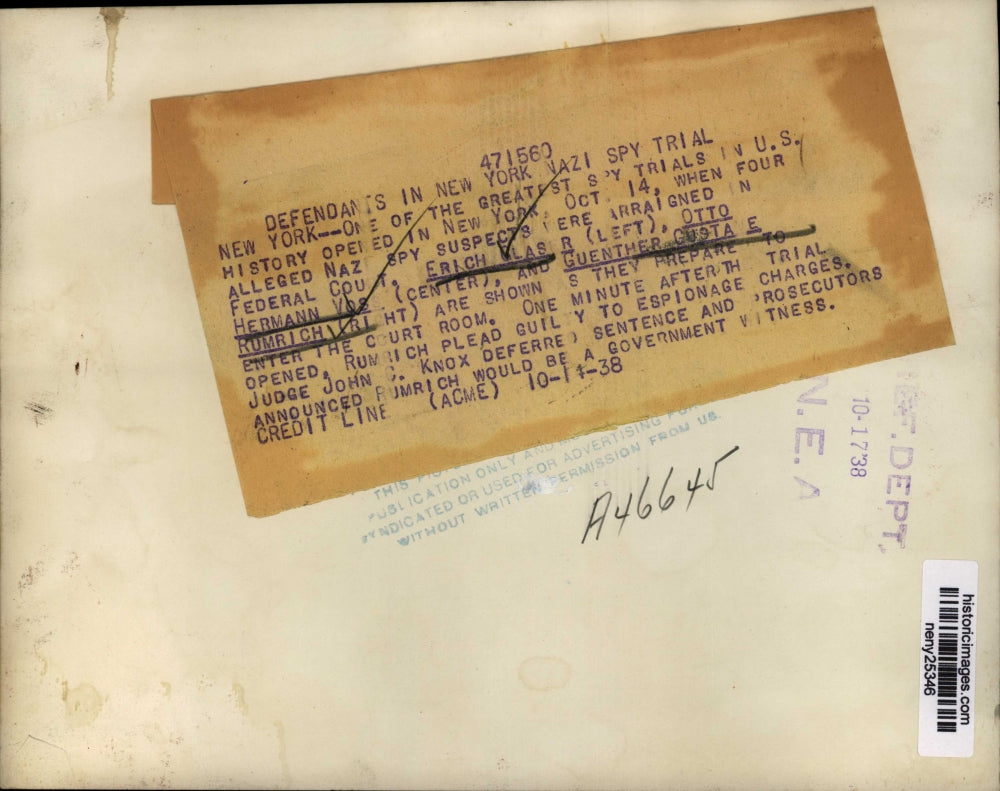 471560
DEFENDANTS IN NEW YORK NAZI SPY TRIAL
NEW YORK--ONE OF THE GREATEST SPY TRIALS IN U.S.
HISTORY OPENED IN NEW YORK, OCT. 14, WHEN FOUR
ALLEGED NAZI SPY SUSPECTS WERE ARRAIGNED IN
FEDERAL COURT. ERICH GLASER (LEFT), OTTO
HERMANN VOS (CENTER), AND GUENTHER GUSTAVE
RUMRICH (RIGHT) ARE SHOWN AS THEY PREPARE TO
ENTER THE COURT ROOM. ONE MINUTE AFTER TH TRIAL
OPENED, RUMRICH PLEAD GUILTY TO ESPIONAGE CHARGES.
JUDGE JOHN C. KNOX DEFERRED SENTENCE AND PROSECUTORS
ANNOUNCED RUMRICH WOULD BE A GOVERNMENT WITNESS.
CREDIT LINE (ACME) 10-14-38
THIS
PUBLICATION ONLY AND
SYNDICATED OR USED FOR ADVERTISING
WITHOUT WRITTEN PERMISSION FROM US.
A46645
DEPT.
10-17'38
N.E.A
historicimages.com
neny25346